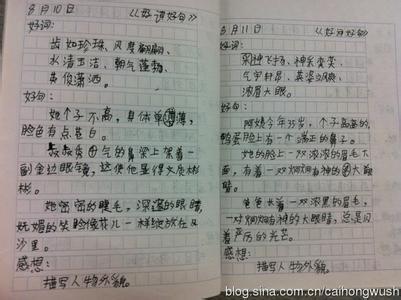 8月10日 《好词好句》
好词:
齿如珍珠、风度翩翩、
水清玉洁、朝气蓬勃、
英俊潇洒。
好句:
她个子不高,身体单薄,
脸色有点苍白。
叔叔秀气的鼻梁上架着一
副金边眼镜,这使他显得文质彬
彬。
她密密的睫毛,深邃的眼睛,
妩媚的笑脸像花儿一样绽放在
沙里。
感想:
描写人物外貌。
8月11日 《好词好句》
好词:
神飞扬、神采奕奕、
气宇轩昂、英姿飒爽、
浓眉大眼。
好句:
阿姨今年35岁,个子高高的,
鸭蛋脸上有一个端正的鼻子。
她的脸上一双浓浓的眉毛下
面,有着一双炯炯有神的大眼
睛。
爸爸长着一双浓黑的眉毛,
一对炯炯有神的大眼睛,总是闪
着严厉的光芒。
感想:
描写人物外貌。
blog.sina.com.cn/caihongwush